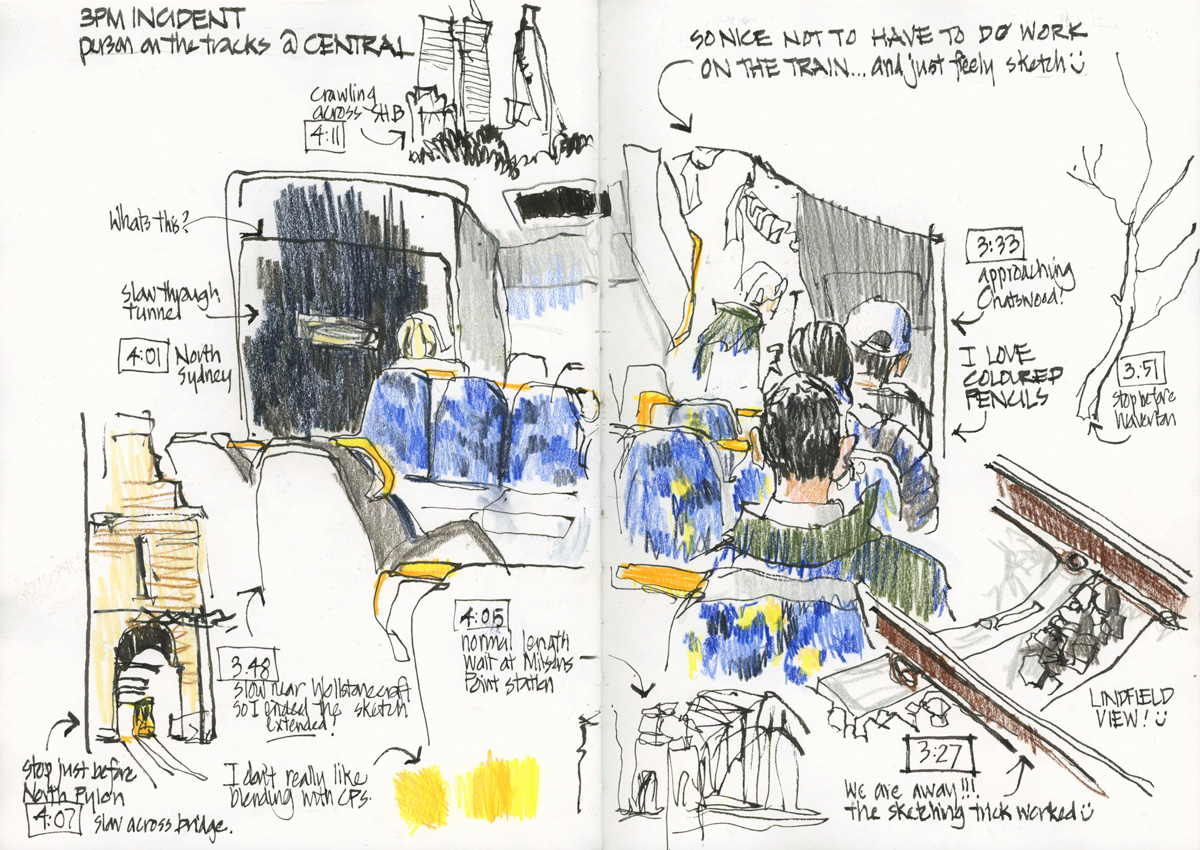 3PM INCIDENT
person on the tracks @ CENTRAL
Crawling
across SHB
4:11
What's this?
slow through
tunnel
4:01 North
Sydney
3:48
slow near Wollstonecraft
so I ended the sketch
extended!
4:05
normal length
wait at Milsons
Point station
stop just before
North Pylon
4:07 slow across bridge.
I don't really like
blending with CPs.
SO NICE NOT TO HAVE TO DO WORK
ON THE TRAIN... and just freely sketch
3:33
approaching
Chatswood!
I LOVE
COLOURED
PENCILS
3:51
stop before
Waverton
LINDFIELD
VIEW!
3:27
We are away!!!
the sketching trick worked